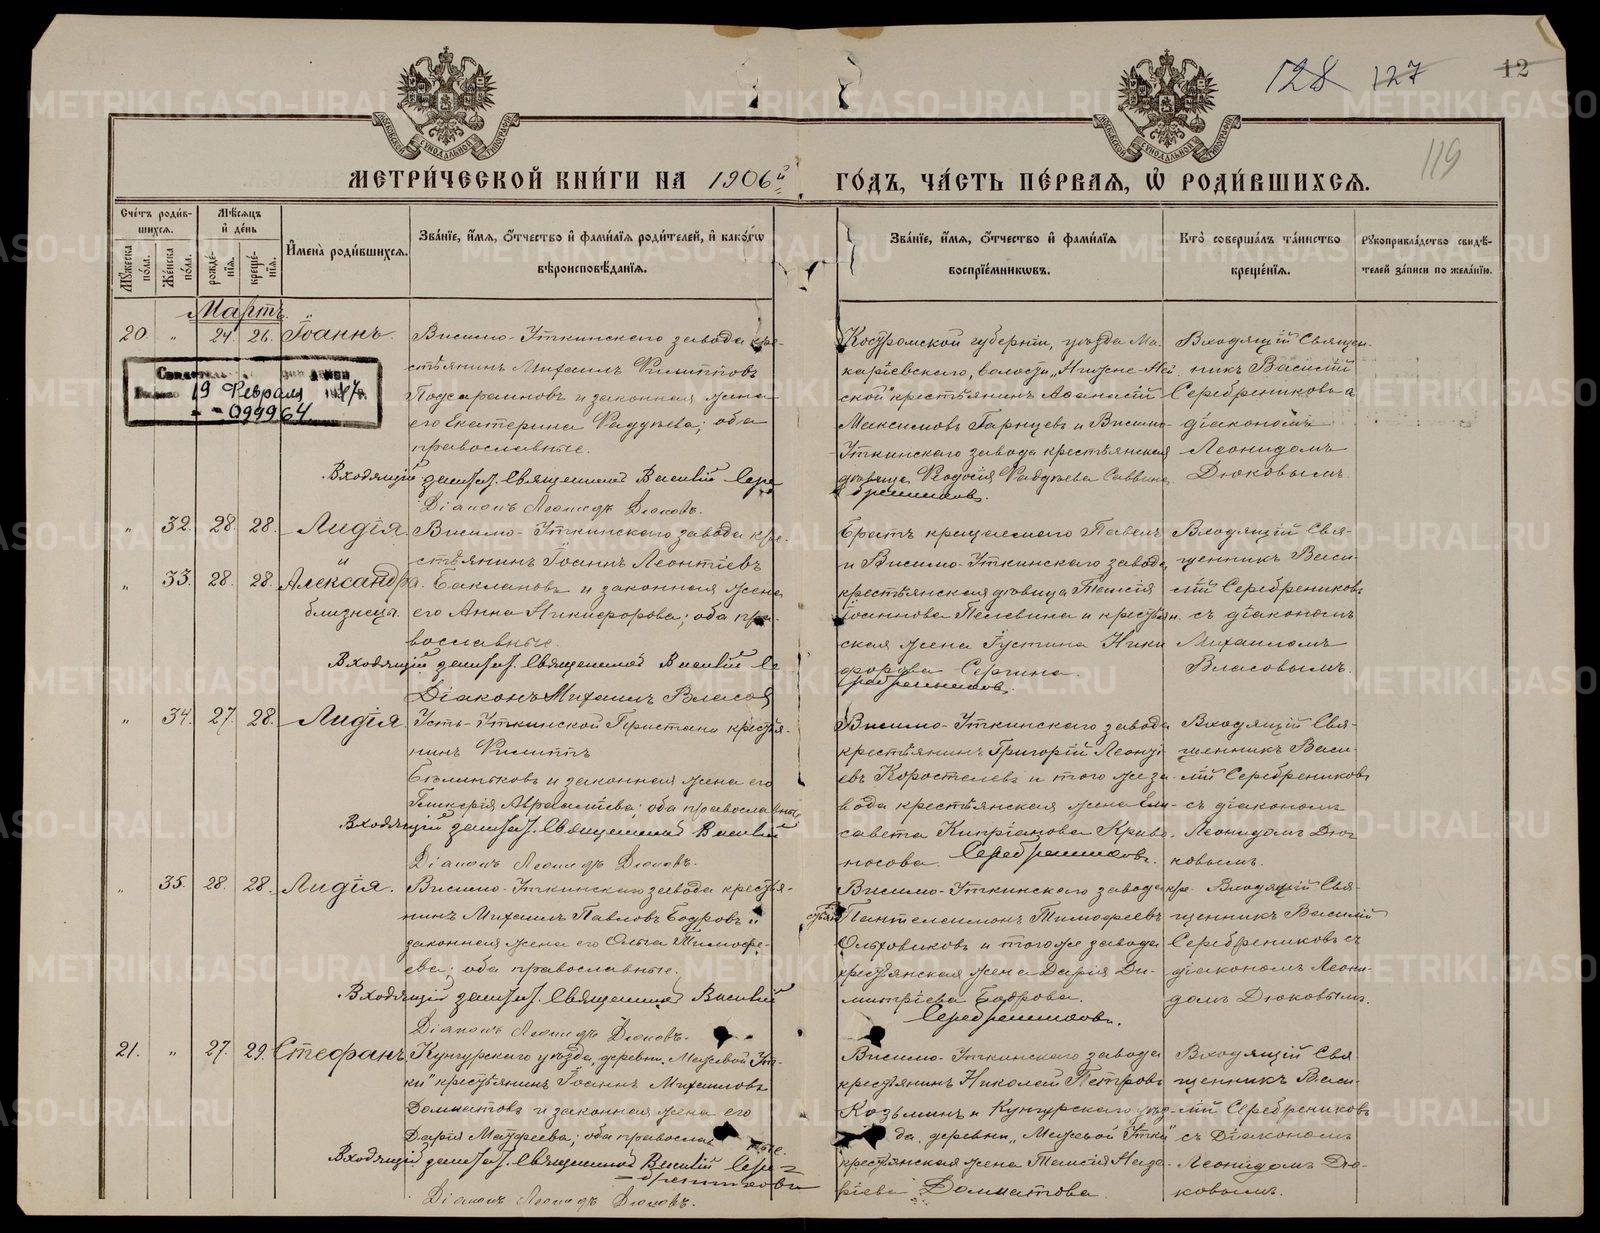 128 127 12
119
МЕТРИ́ЧЕСКОЙ КНИ́ГИ НА 1906й ГО́ДЪ, ЧА́СТЬ ПЕ́РВАЯ, Ѡ РОДИ́ВШИХСЯ.
Сче́тъ роди́вшихся.
Мꙋ́жеска по́ла.
Же́нска по́ла.
Мѣ́сяцъ и де́нь
рожде́нїя.
креще́нїя.
И҆мена̀ роди́вшихся.
Зва́нїе, и҆́мя, ѻ҆́тчество и҆ фами́лїя роди́телей, и҆ како́гѡ
вѣроисповѣ́данїя.
Зва́нїе, и҆́мя, ѻ҆́тчество и҆ фами́лїя
воспрїе́мникѡвъ.
Кто̀ соверша́лъ та́инство
креще́нїя.
Рꙋкоприкла́дство свидѣ́-
телей за́писи по жела́нїю.
Мартъ.
20 " 24. 26. Іоаннъ.
Висимо-Уткинскаго завода кре-
стьянинъ Михаилъ Филипповъ
и законная жена
его Екатерина Фаддѣева; оба
православные.
19 Февраля
099964
Входящій Священникъ Василій Сере
бренниковъ.
Діаконъ Леонидъ Дюковъ.
Костромской губерніи, уѣзда Ма-
карьевскаго, волости
ской крестьянинъ Аѳанасій
Максимовъ и Висимо-
Уткинскаго завода крестьянская
дѣвица Ѳеодосія Фаддѣева Саввина.
Входящій Священ-
никъ Василій
Серебрениковъ а
діакономъ
Леонидомъ
Дюковымъ.
" 32. 28. 28. Лидія
и
" 33. 28. 28. Александра.
близнецы.
Висимо-Уткинскаго завода кре-
стьянинъ Іоаннъ Леонтіевъ
Баклановъ и законная жена
его Анна Никифорова; оба пра-
вославные.
Входящій Священникъ Василій Се
ребренниковъ.
Діаконъ Михаилъ Власовъ
Братъ крещаемаго Павелъ
и Висимо-Уткинскаго завода
крестьянская дѣвица Таисія
Іоаннова Пелевина и крестьян-
ская жена Іустина Ники
форова Сергина.
Входящій Свя-
щенникъ Васи-
лій Серебрениковъ
съ діакономъ
Михаиломъ
Власовымъ.
" 34. 27. 28. Лидія
Усть-Уткинской Пристани крестья-
нинъ Филиппъ
и законная жена его
Гликерія Авраамiева; оба православные
Входящій Священникъ Василій
Серебренниковъ.
Діаконъ Леонидъ Дюковъ.
Висимо-Уткинскаго завода
крестьянинъ Григорій Леонті
евъ Коростелевъ и того же за-
вода крестьянская жена Ели-
савета Кипріанова Криво-
носова.
Входящій Свя-
щенникъ Васи-
лій Серебрениковъ
съ діакономъ
Леонидомъ Дю-
ковымъ.
" 35. 28. 28. Лидія.
Висимо-Уткинскаго завода крестья-
нинъ Михаилъ Павловъ Бодровъ и
законная жена его Ольга Тимофе-
ева; оба православные.
Входящій Священникъ Василій
Серебренниковъ.
Діаконъ Леонидъ Дюковъ.
Висимо-Уткинскаго завода кре-
стьян. Пантелеимонъ Тимофеевъ
Ольховиковъ и того же завода
крестьянская жена Дарія Ди-
митріева Бодрова.
Входящій Свя-
щенникъ Василій
Серебрениковъ съ
діакономъ Леони-
домъ Дюковымъ.
21. " 27. 29. Стефанъ
Кунгурскаго уѣзда, деревни „Межевой Ут-
ки" крестьянинъ Іоаннъ Михаиловъ
Долматовъ и законная жена его
Дарія Матфеева; оба православные.
Входящій Священникъ Василій Сере=
=бренниковъ
Діаконъ Леонидъ Дюковъ.
Висимо-Уткинскаго завода
крестьянинъ Николай Петровъ
Козьминъ и Кунгурскаго уѣз-
да, деревни „Межевой Утки"
крестьянская жена Таисія Наза-
ріева Долматова.
Входящій Свя
щенникъ Васи-
лій Серебрениковъ
съ Діакономъ
Леонидомъ Дю-
ковымъ.
METRIKI.GASO-URAL.RU